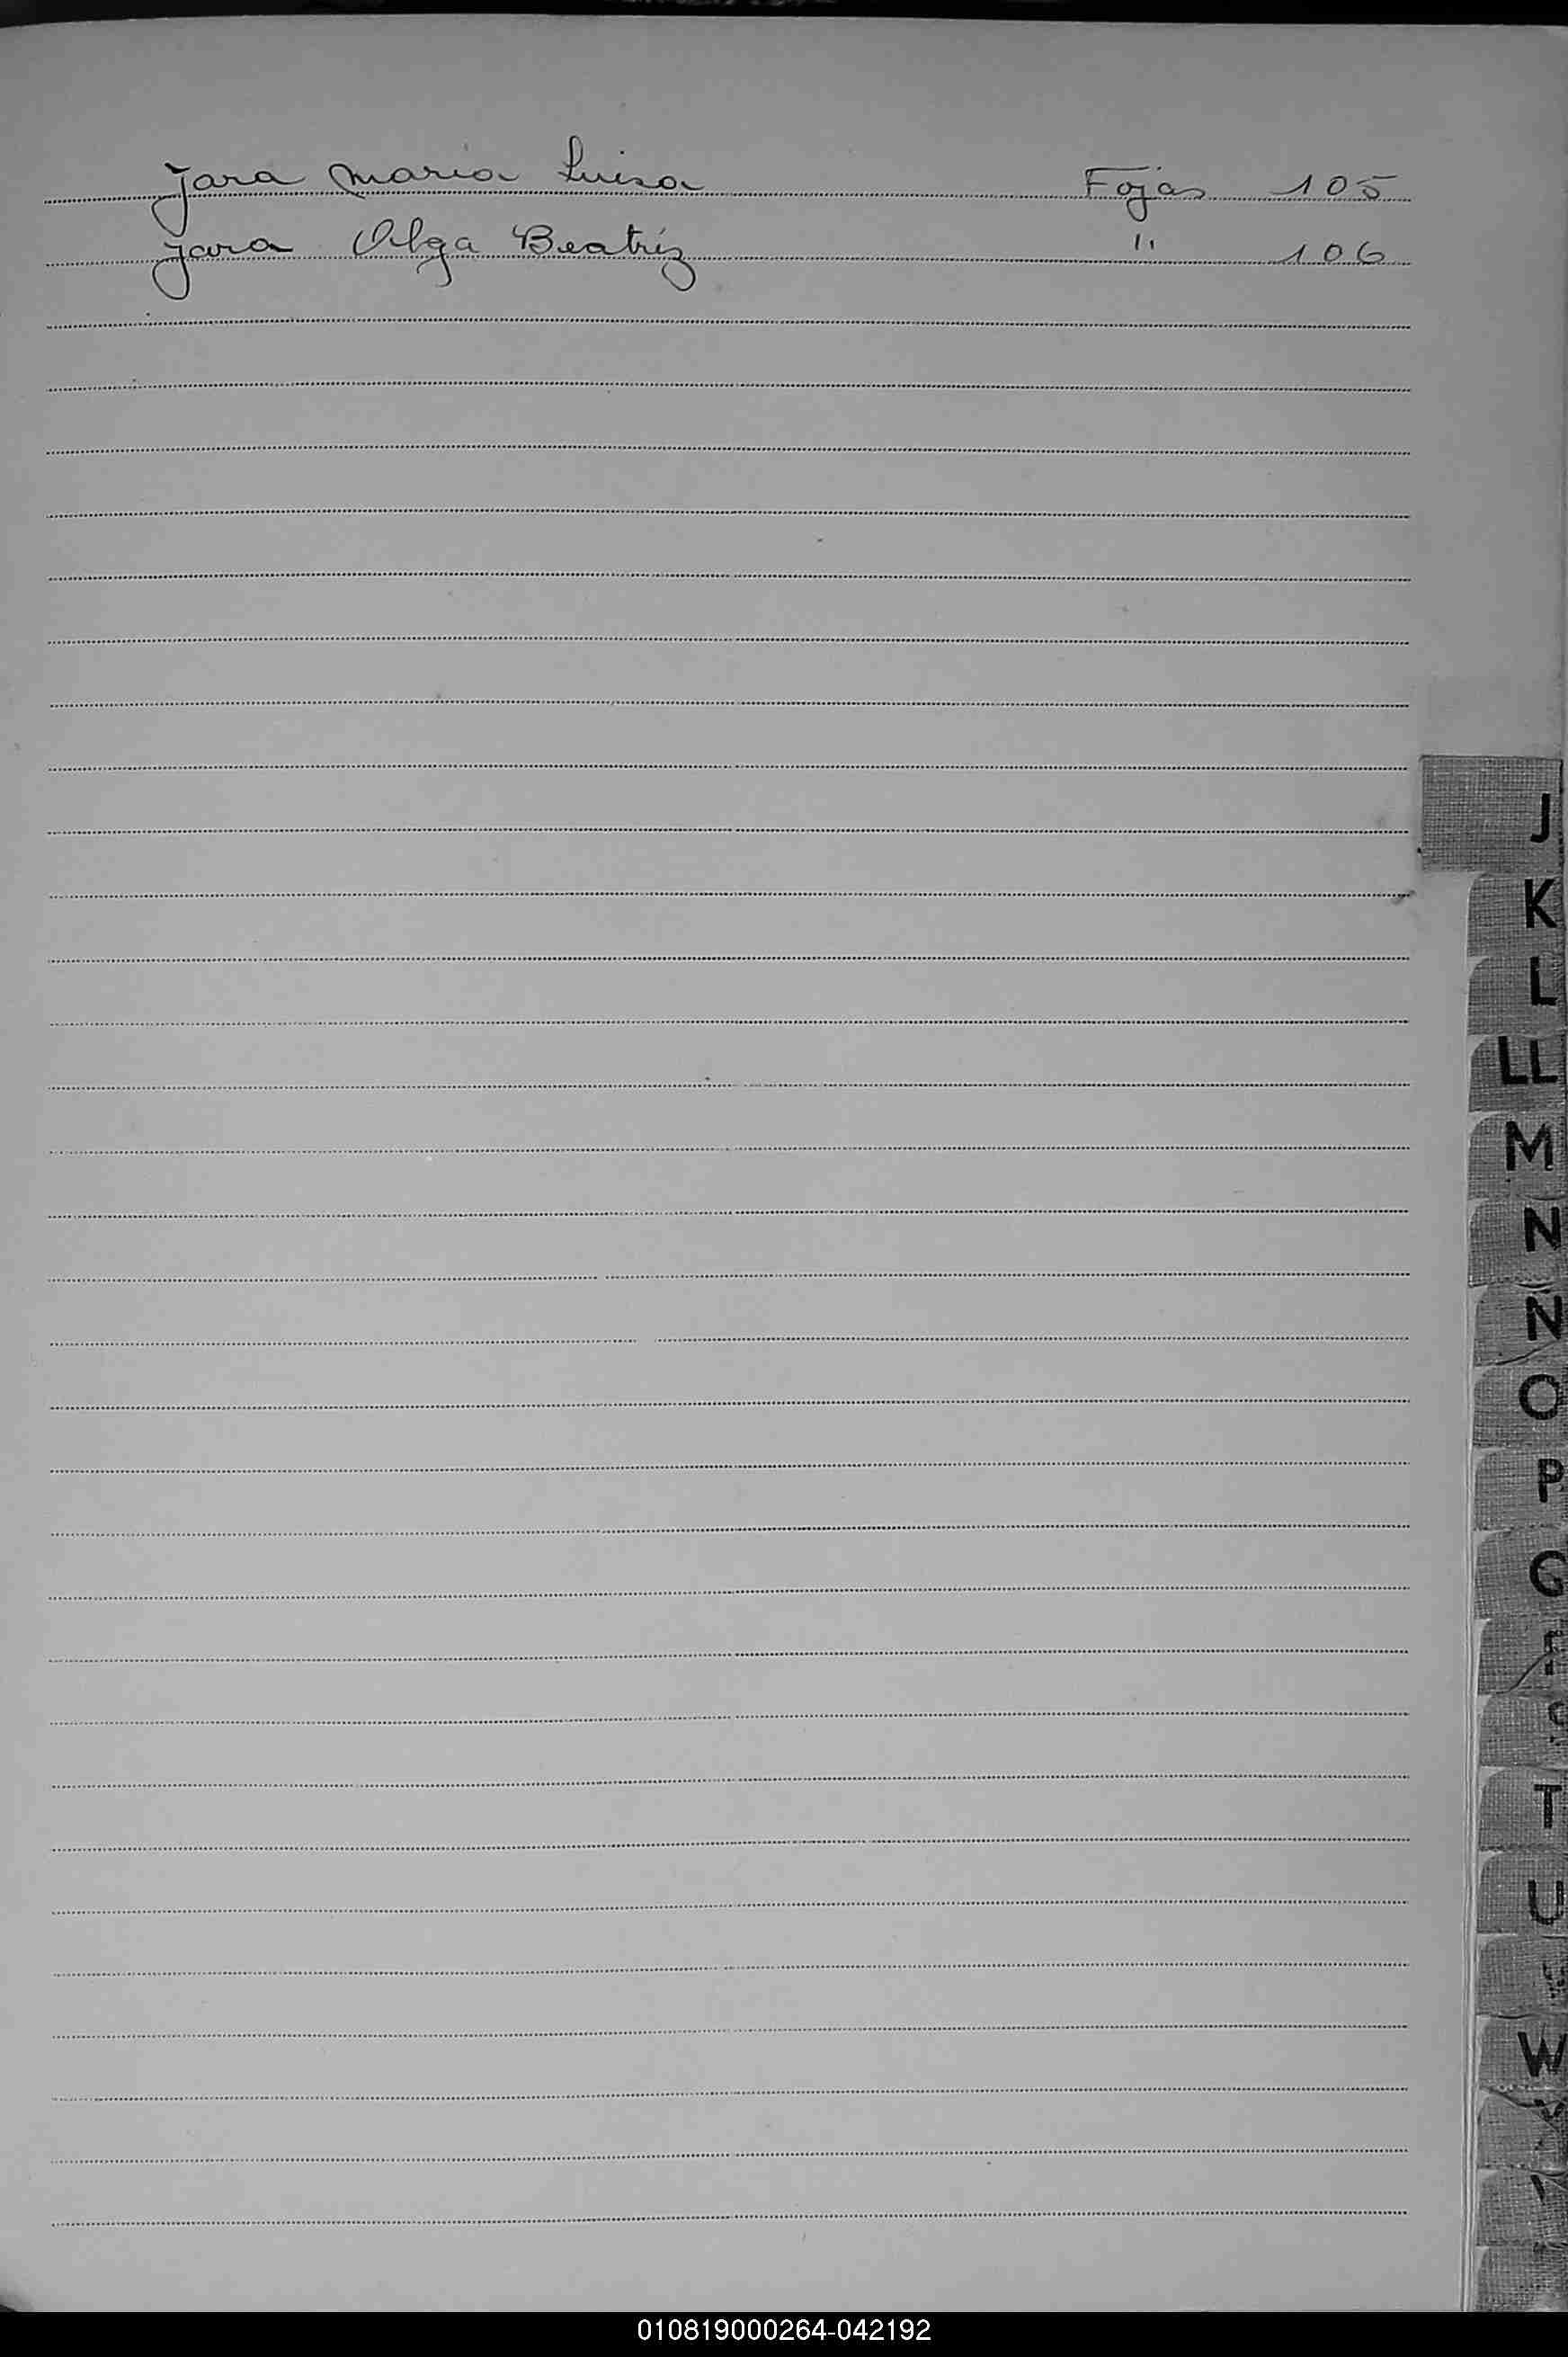 Jara Maria Luisa Fojas 105
Jara Olga Beatríz " 106
J
K
L
LL
M
N
N
O
P
T
U
W
010819000264-042192